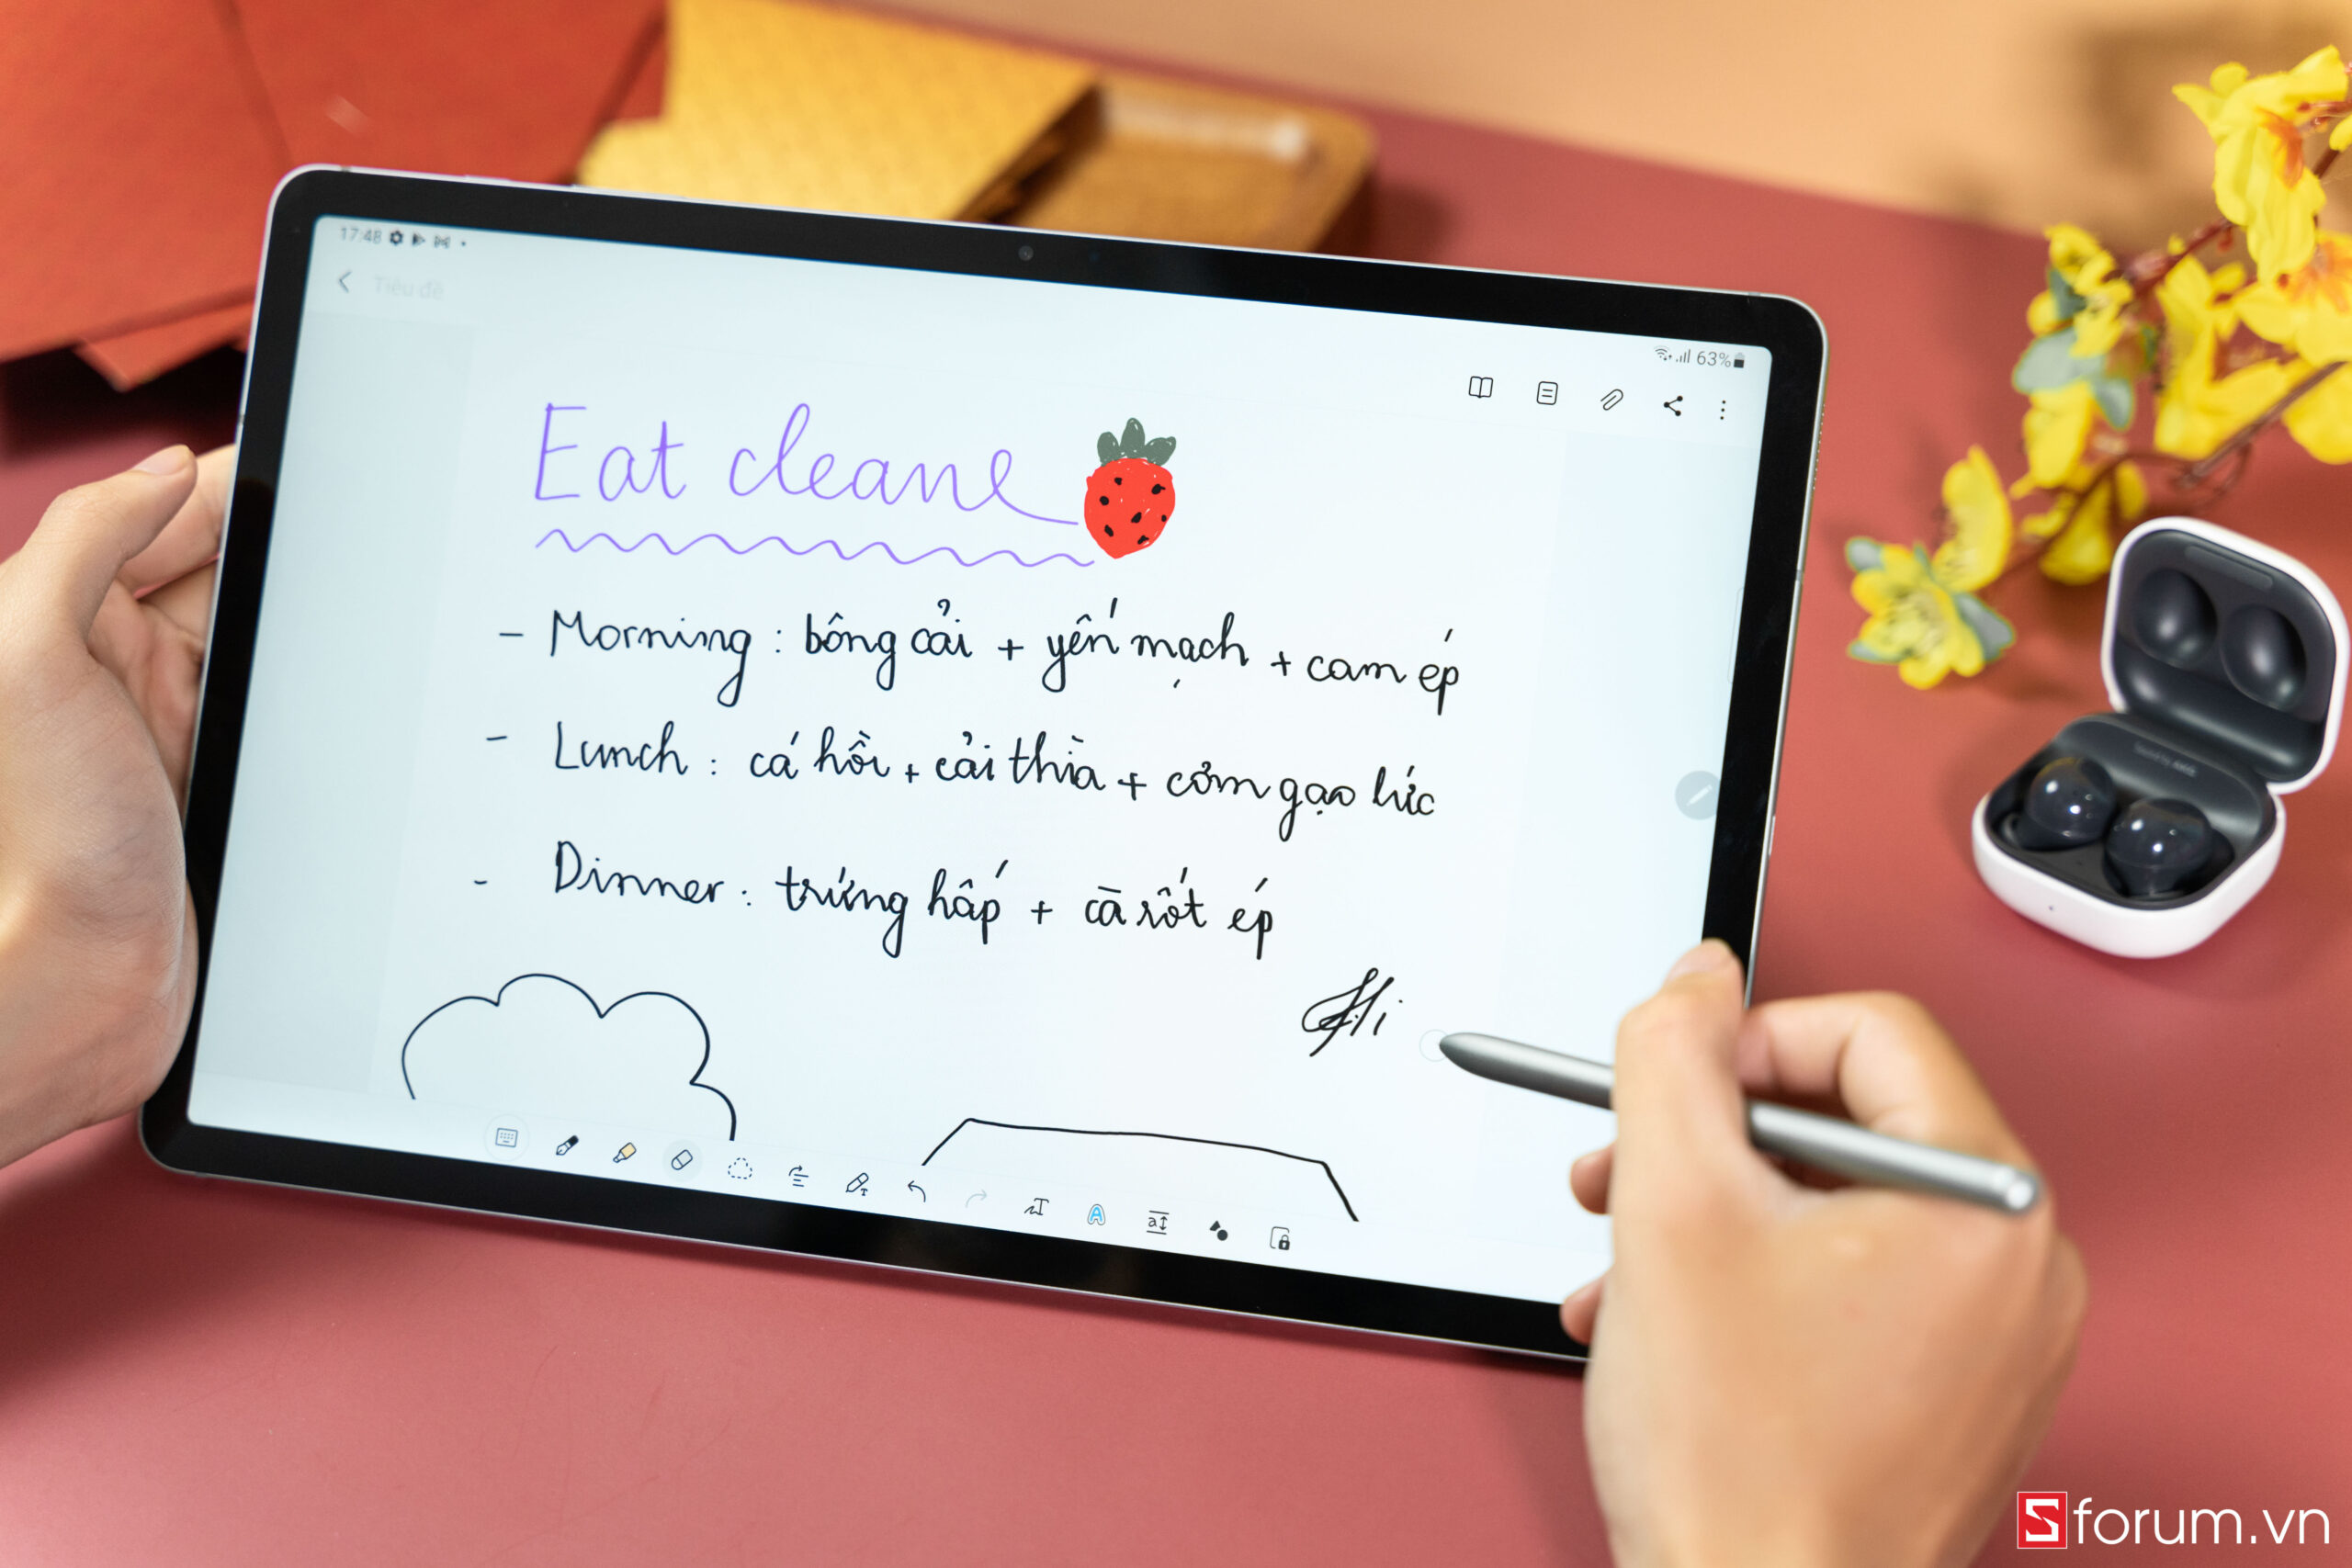 17:48
63%
Tiêu đề
Eat cleane
- Morning : bông cải + yến mạch + cam ép
- Lunch : cá hồi + cải thìa + cơm gạo lức
- Dinner : trứng hấp + cà rốt ép
Hi
Sforum.vn